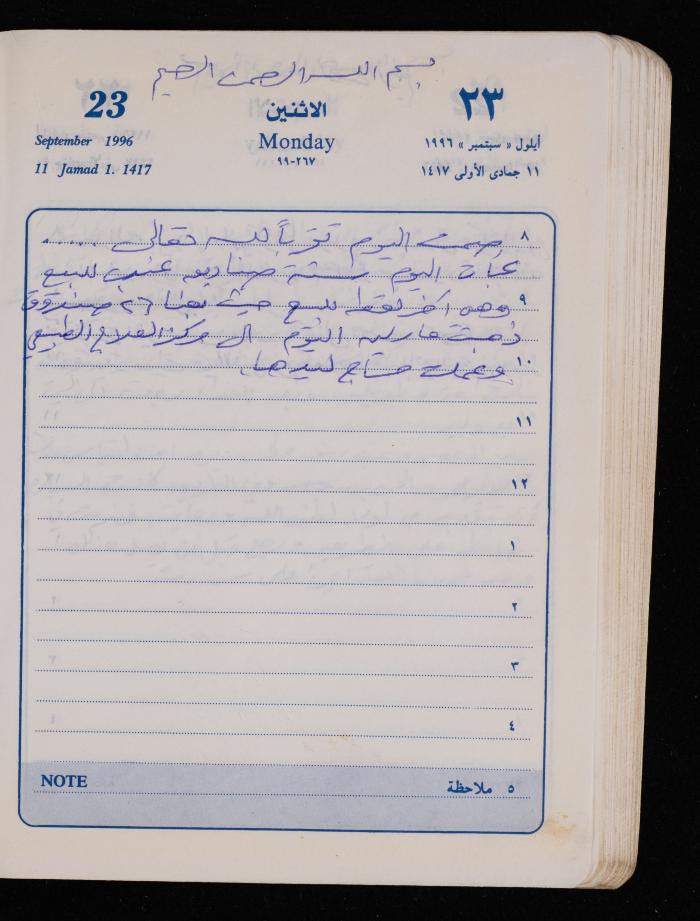 بسم الله الرحمن الرحيم
23 الاثنين ٢٣
September 1996 Monday أيلول « سبتمبر » ١٩٩٦
11 Jamad 1. 1417 ٢٦٧-٩٩ ١١ جمادى الأولى ١٤١٧
٨ صمت اليوم تقرباً لله تعالى .....
عبأت اليوم ستة صناديق عنب للبيع
٩ وهو آخر قطف للبيع حيث بعنا ٢٦ صندوق
ذهبت اليوم الى مركز العلاج الطبيعي
١٠ وعملت مساج ليدها.
١١
١٢
١
٢
٣
٤
NOTE ٥ ملاحظة